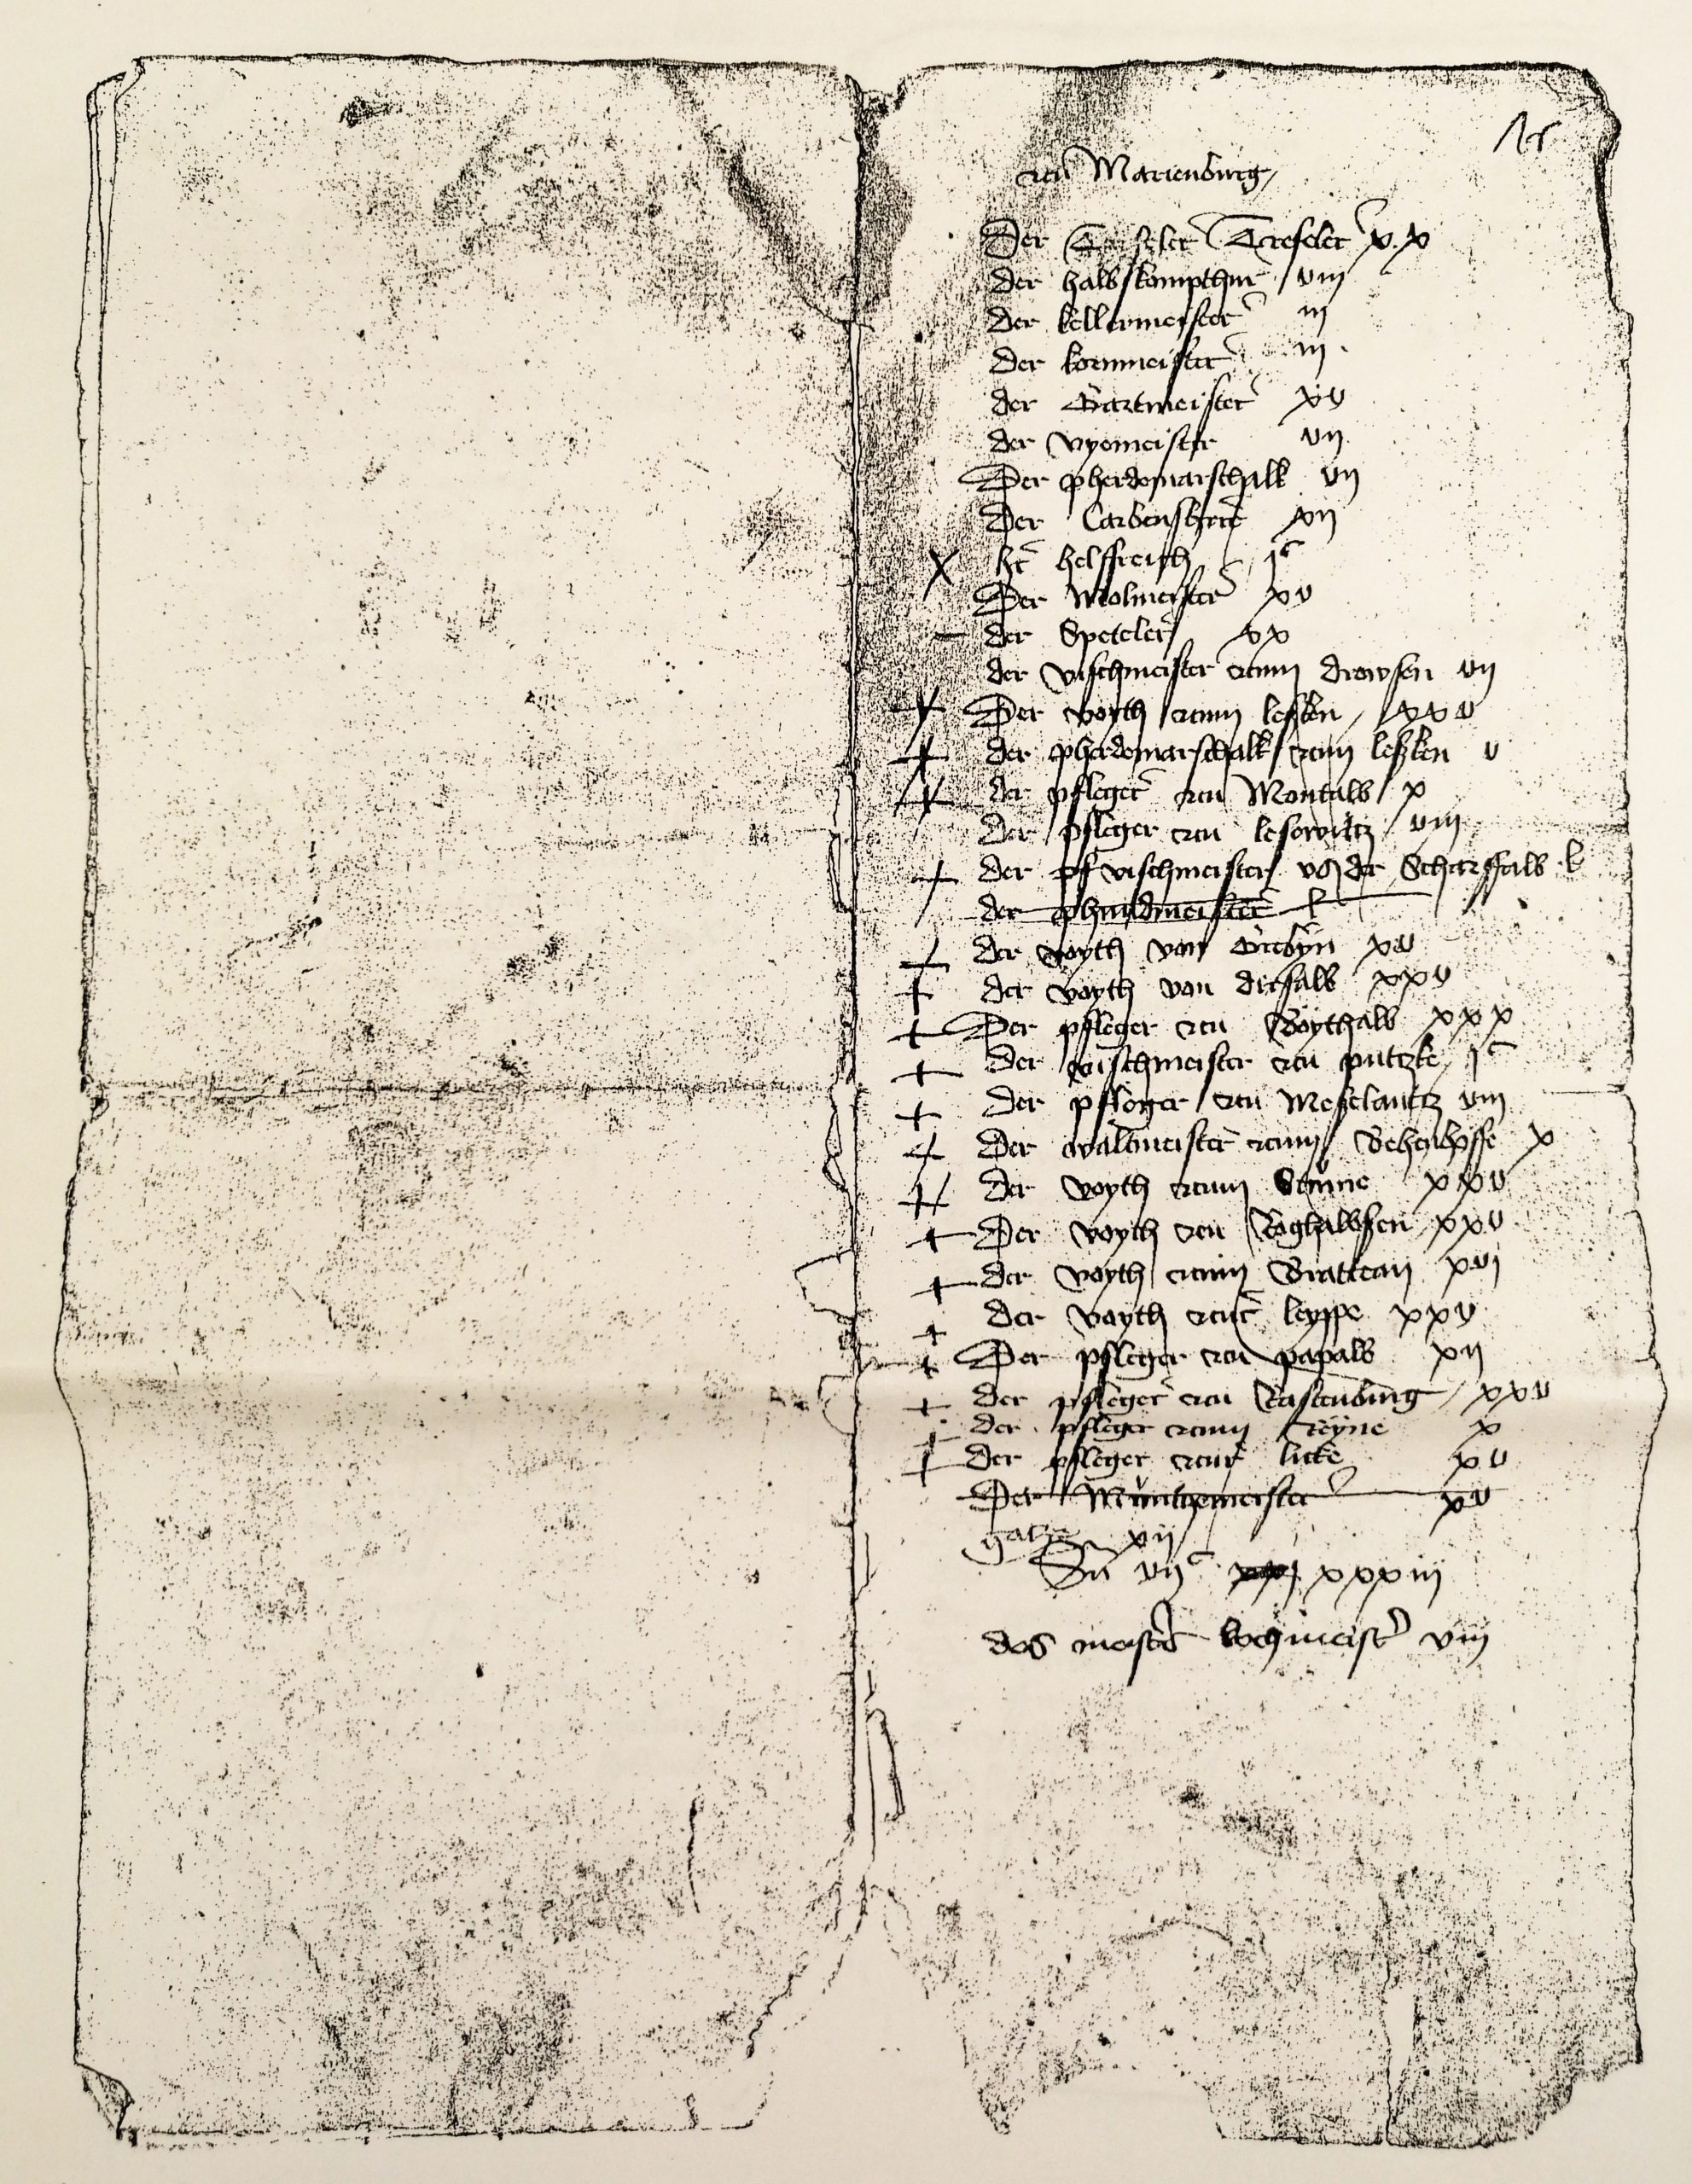 czu Marienburg
Der Treseler Treseler xx
der halbskompthur viii
der kellermeister iii
der kornmeister iii
der Gartmeister xv
der vyemeister vii
Der pherdemarschalk vii
Der Carbensherre xii
her helffreich jc
Der Molmeister xv
der Speteler xx
der vischmeister czum drawsen vii
Der voyth czum lesken xxv
der pherdemarschalk czum lesken v
der pfleger czu Montaw x
Der pfleger czu lesewitz viii
der pf vischmeister vs der Scharffaw l
der phundmeister l
der voyth von Grebyn xv
der voyth von dirsaw xxv
Der pfleger czu Bóythaw xxx
der vischmeister czu putzke jc
der pfleger czu Meselantz viii
Der waltmeister czum x
der voyth czum Stume xxv
Der voyth czu Roghawsen xxv
der voyth czum Brattean xvi
der voyth czur leyppe xxv
Der pfleger czu papaw xii
der pfleger czu Rastenburg xxv
der pfleger czum Reyne x
der pfleger czur licke xv
Der Muntzemeister xv
xii
Sa viic xxxiii
des meisters kochmeister viii